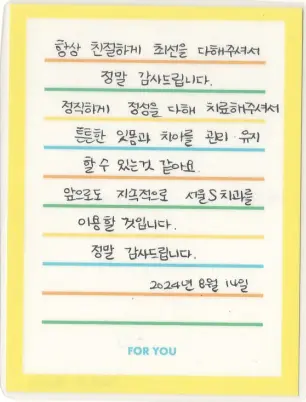 항상 친절하게 최선을 다해주셔서
정말 감사드립니다.
정직하게 정성을 다해 치료해주셔서
튼튼한 잇몸과 치아를 관리·유지
할 수 있는것 같아요.
앞으로도 지속적으로 서울S치과를
이용할 것입니다.
정말 감사드립니다.
2024년 8월 14일
FOR YOU